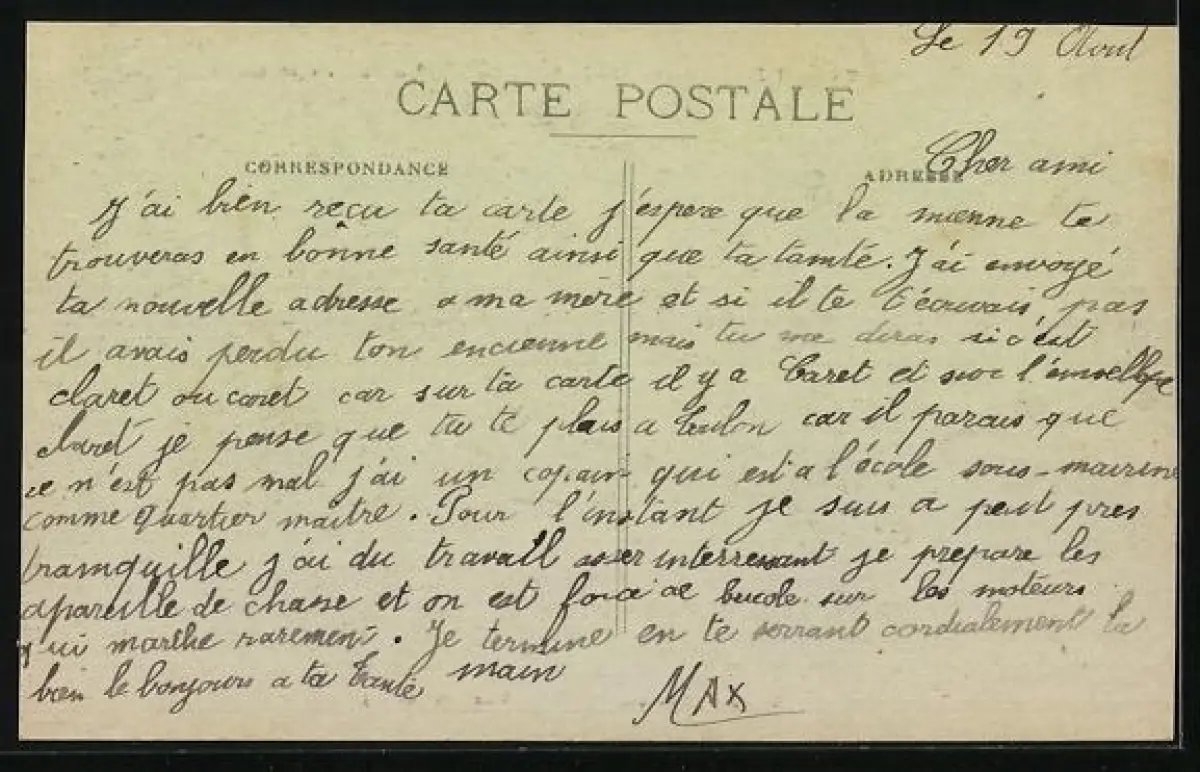 Le 19 Avril
CARTE POSTALE
CORRESPONDANCE
ADRESSE
Cher ami
J'ai bien reçu ta carte j'espere que la mienne te
trouveras en bonne santé ainsi que ta tamte. J'ai envoyé
ta nouvelle adresse a ma mère et si il te t'écrivais pas
il avais perdu ton encienne mais tu me diras si c'est
claret ou caret car sur ta carte il y a Caret et sur l'envellope
claret je pense que tu te plais a toulon car il parais que
ce n'est pas mal j'ai un copain qui est a l'école sous-marine
comme Quartier maitre. Pour l'instant je suis a peut pres
tramquille j'ai du travail asser interressant je prépare les
apareille de chasse et on est force de sur les moteurs
qui marche rarement. Je termine en te serrant cordialement la
main
bien le bonjours a ta tante
MAX